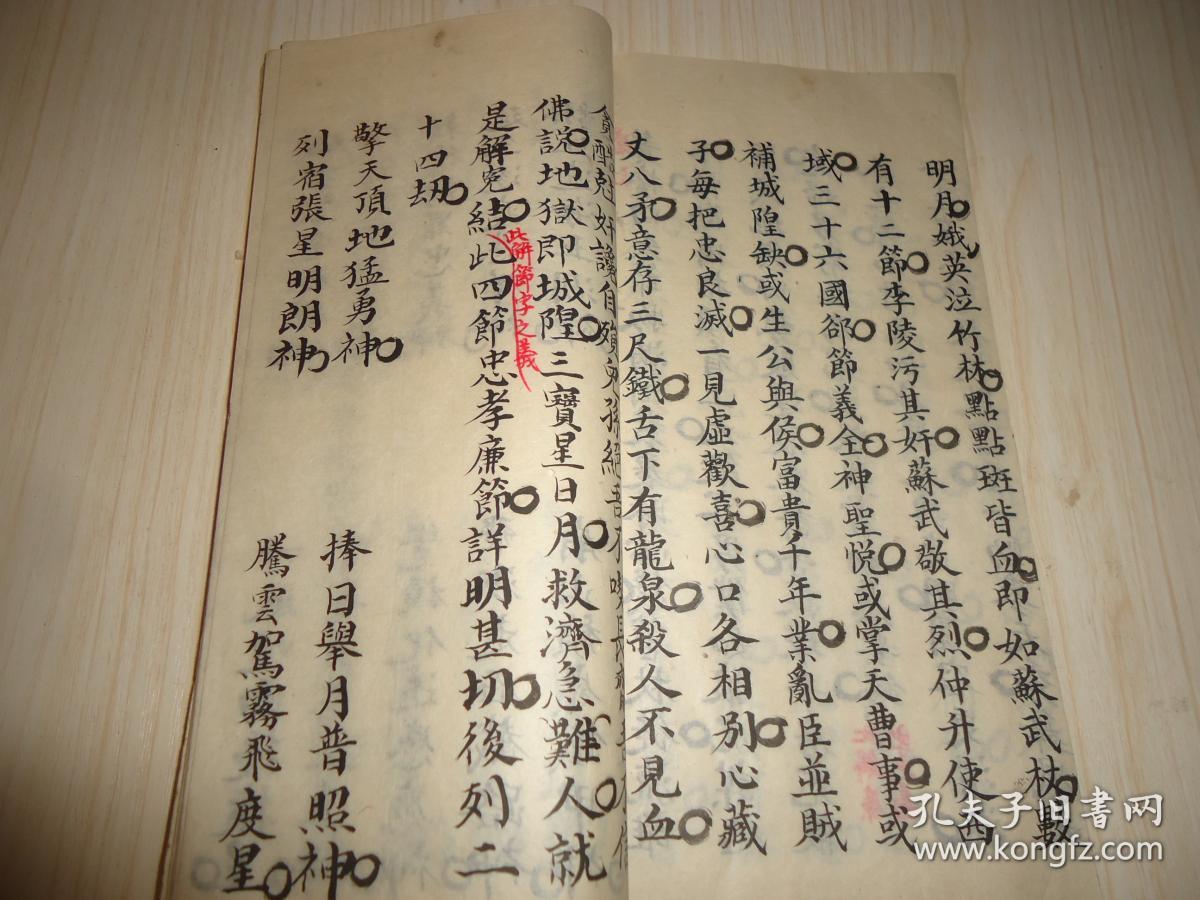 明月娥英泣竹林點點斑皆血即如蘇武杖數
有十二節李陵污其奸蘇武敬其烈仲升使西
域三十六國郤節義全神聖悅或掌天曹事或
補城隍缺或生公與侯富貴千年業亂臣並賊
子每把忠良滅一見虛歡喜心口各相別心藏
丈八矛意存三尺鐵舌下有龍泉殺人不見血
貪酷尅奸讒自
佛說地獄即城隍三寶星日月救濟急難人就
是解冤結此四節忠孝廉節詳明甚切後列二
此解節字之義
十四刼
擎天頂地猛勇神 捧日舉月普照神
列宿張星明朗神 騰雲駕霧飛度星
孔夫子旧书网
www.kongfz.com